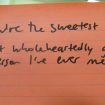 're the sweetest
t wholeheartedly
erson I've ever me